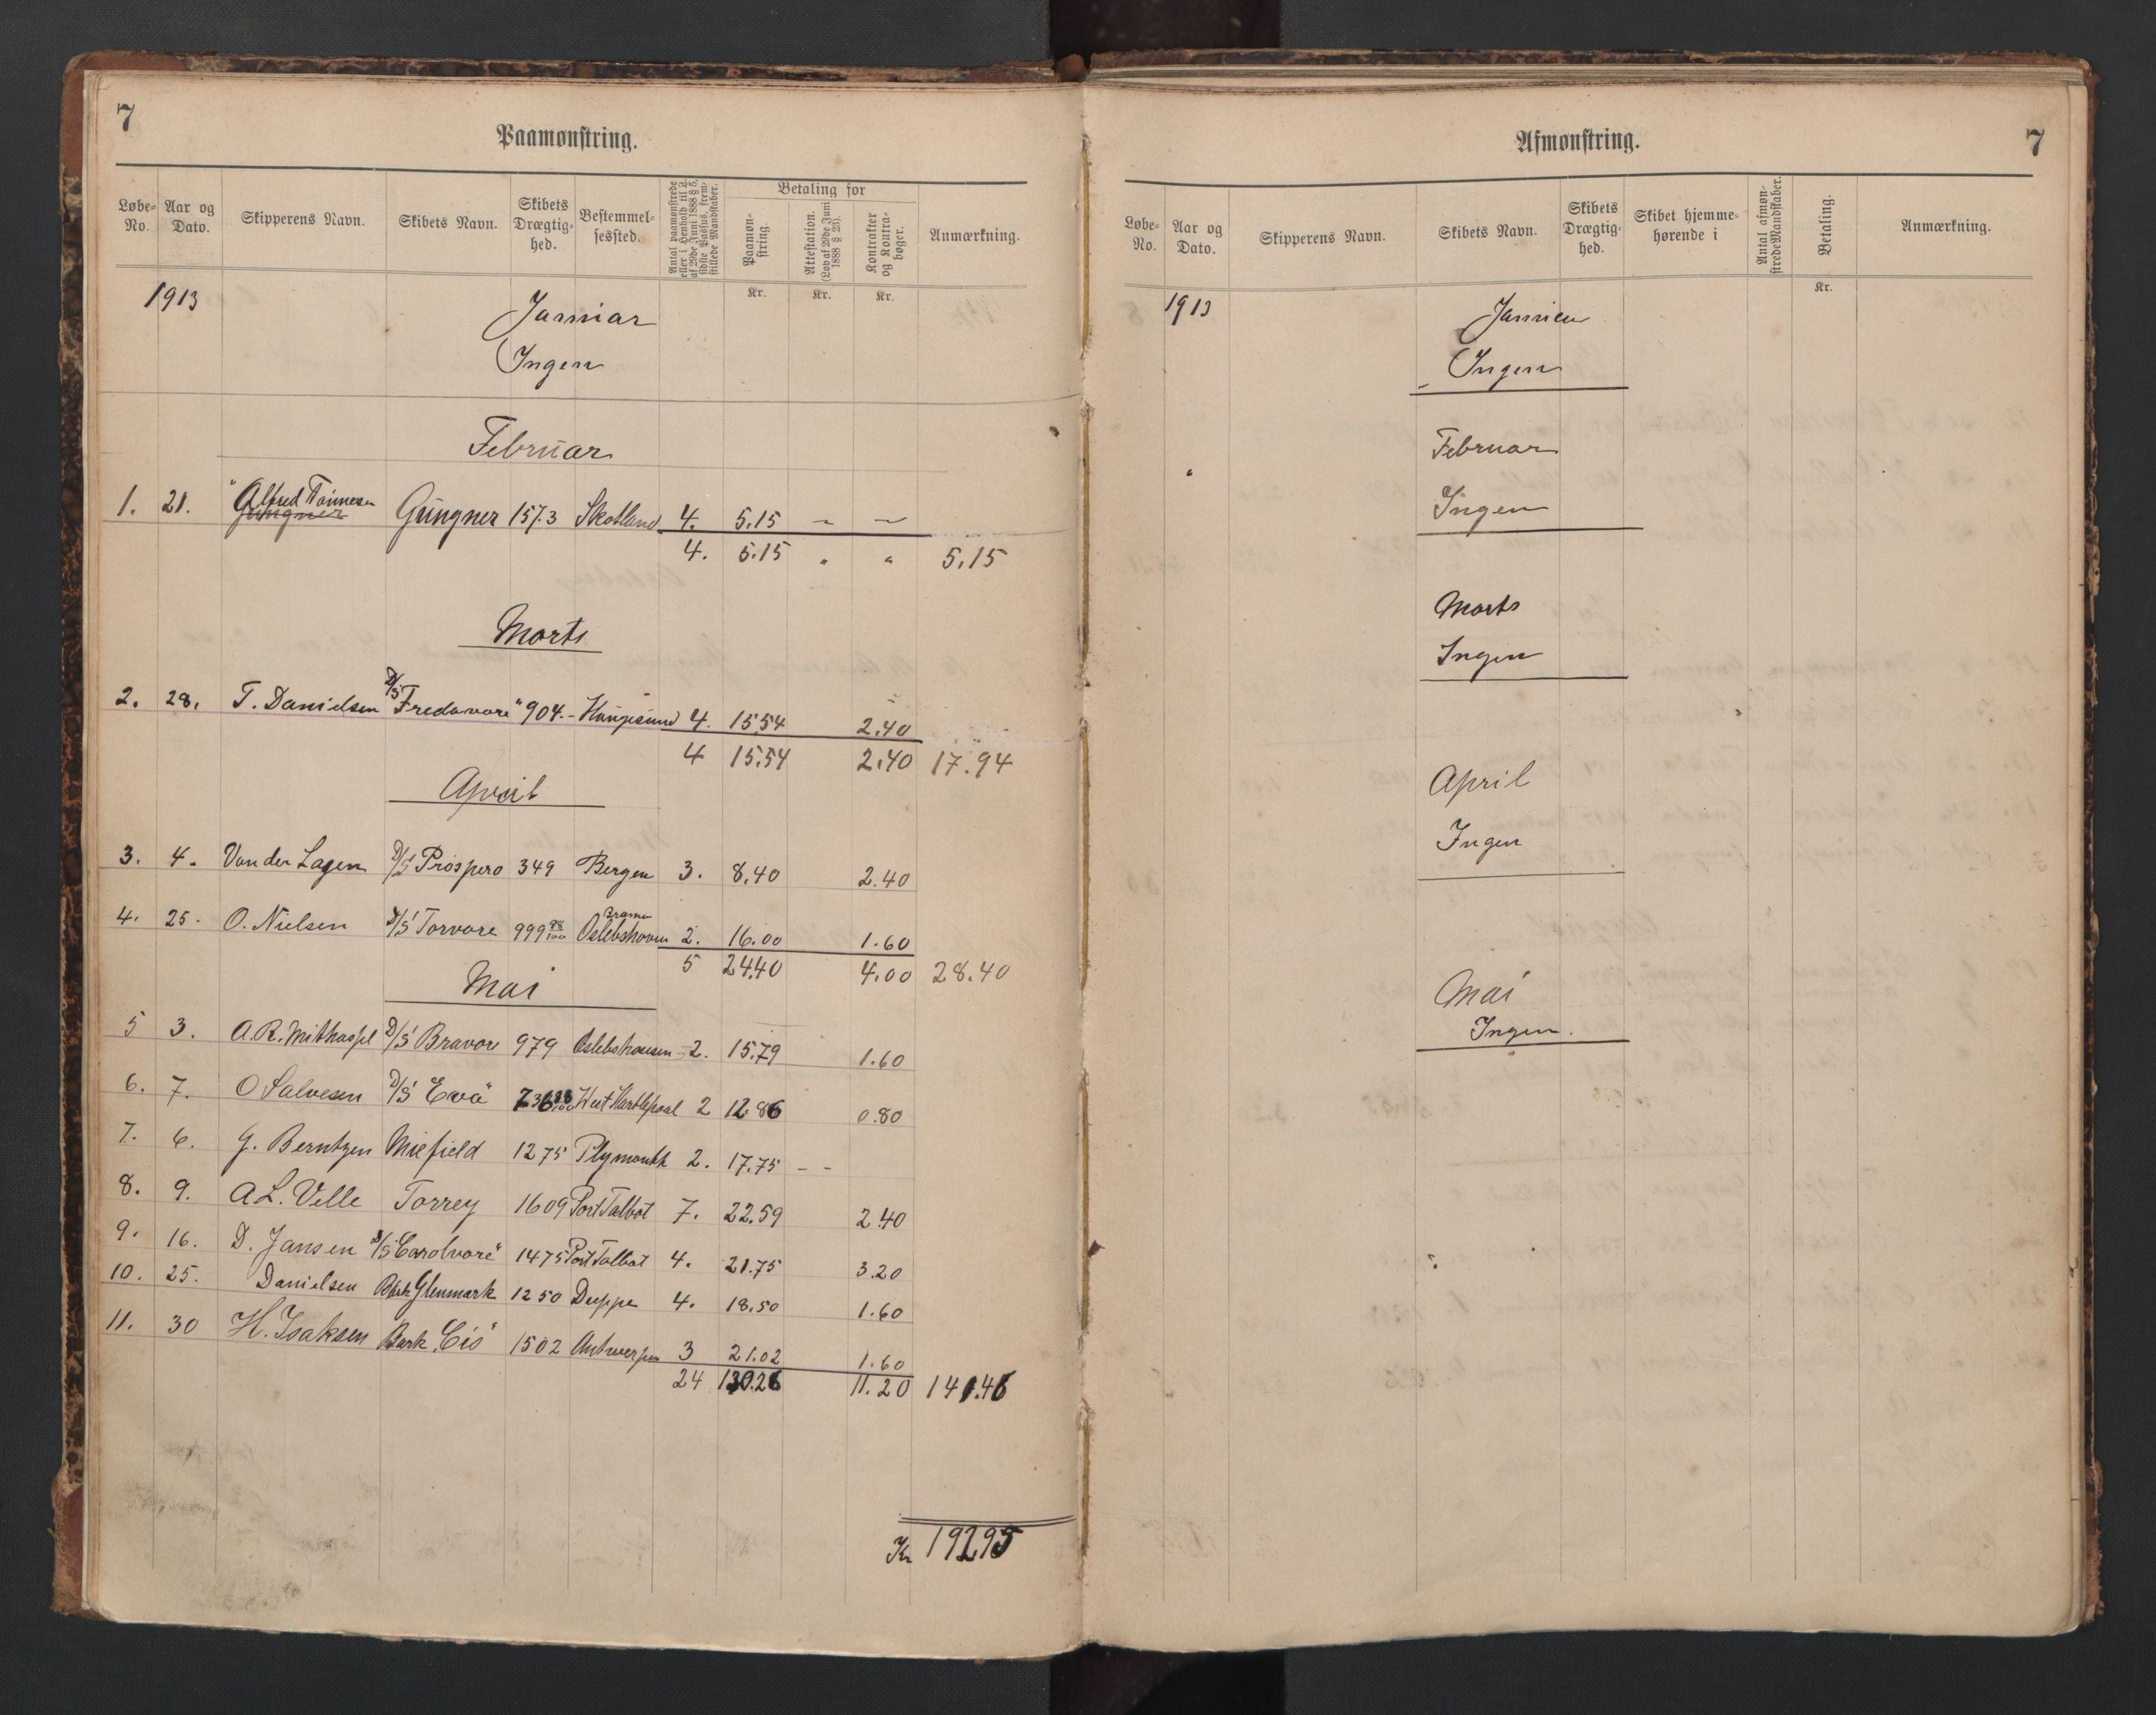 7
Paamønstring.
Løbe-No.
Aar og Dato.
Skipperens Navn.
Skibets Navn.
Skibets Drægtighed.
Bestemmelsessted.
Antal paamønstrede eller i Henhold til L. af 29de Juni 1888 § 5, sidste Passus, fremstillede Mandskaber.
Betaling for
Paamønstring.
Attestation. (Lov af 29de Juni 1888 § 23).
Kontrakter og Kontrabøger.
Anmærkning.
Kr. Kr. Kr.
1913 Januar
Ingen
Februar
1. 21. Alfred Gungner 157.3 Skotland 4. 5.15 - -
4. 5.15 " " 5.15
Marts
2. 28. T. Danielsen D/S "Fredavore" 904.- Haugesund 4. 15.54 2.40
4 15.54 2.40 17.94
April
3. 4. Von der Lagen D/S Prospero 349 Bergen 3. 8.40 2.40
4. 25. O. Nielsen D/S Torvore 999 98/100 Oslebshaven 2. 16.00 1.60
5 24.40 4.00 28.40
Mai
5 3. A. R. D/S Bravore 979 Oslebshausen - 2. 15.79 1.60
6. 7. O Salvesen D/S "Eva" 736 88/100 West Hartlepool 2 12.86 0.80
7. 6. G. Berntzen Miefield 1275 Plymouth 2. 17.75 - -
8. 9. A. L. Velle Torrey 1609 Port Talbot 7. 22.59 2.40
9. 16. D. Jansen D/S "Carolvore" 1475 Port Talbot 4. 21.75 3.20
10. 25. Danielsen Bark Glenmark 1250 Dieppe 4. 18.50 1.60
11. 30 H. Isaksen Bark "Cis" 1502 Antwerpen 3 21.02 1.60
24 130.26 11.20 141.46
Kr 192.95
Afmønstring.
7
Løbe-No.
Aar og Dato.
Skipperens Navn.
Skibets Navn.
Skibets Drægtighed.
Skibet hjemmehørende i
Antal afmønstrede Mandskaber.
Betaling.
Anmærkning.
Kr.
1913 Januar
Ingen
Februar
Ingen
Marts
Ingen
April
Ingen
Mai
Ingen.